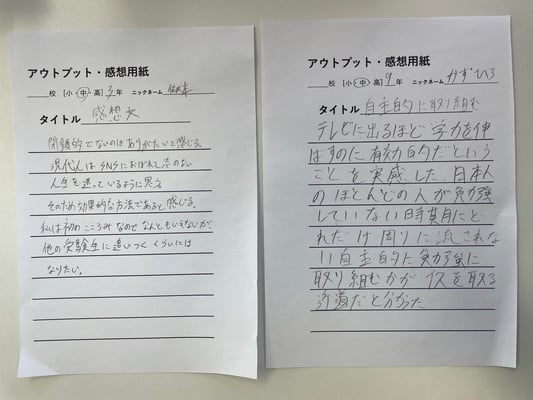 アウトプット・感想用紙
校 [小・中・高] 3年 ニックネーム
タイトル 感想文
閉鎖的でないのはありがたいと感じる。
現代人はSNSにおぼれて志のない
人生を送っているように思う
そのため効果的な方法であると感じる。
私は初のこころみなのでなんともいえないが
他の受験生に追いつくくらいには
なりたい。
アウトプット・感想用紙
校 [小・中・高] 9年 ニックネーム かずひろ
タイトル 自主的に取り組む
テレビに出るほど学力を伸
ばすのに有効的だという
ことを実感した。日本人
のほとんどの人が勉強
していない時期にど
れだけ周りに流されな
い自主的に勉強に
取り組むかが
を取る
近道だと分かった